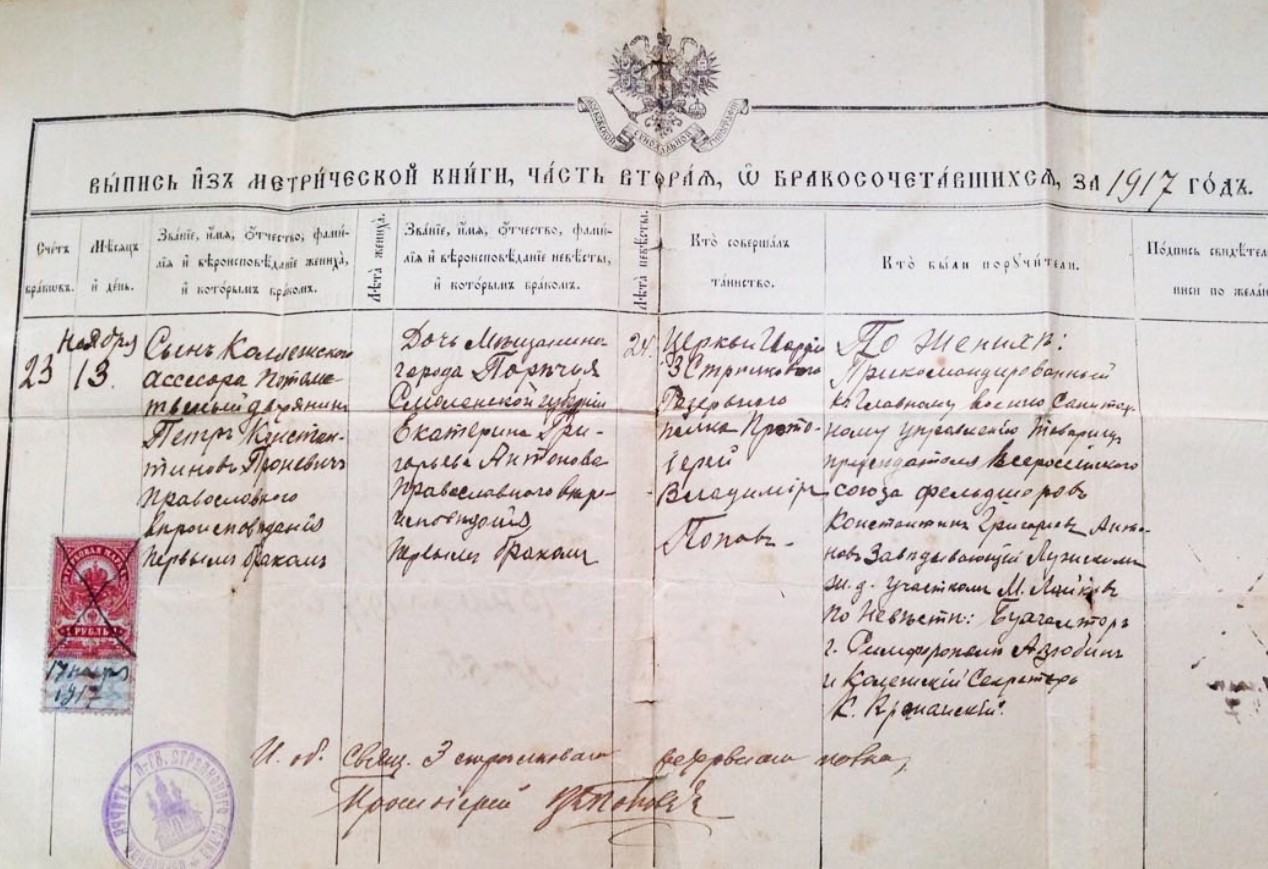 МОСКОВСКОЙ СѴНОДАЛЬНОЙ ТИПОГРАФІИ
ВЫ́ПИСЬ И҆ЗЪ МЕТРИ́ЧЕСКОЙ КНИ́ГИ, ЧА́СТЬ ВТОРА́Ѧ, Ѡ҆ БРАКОСОЧЕТА́ВШИХСѦ, ЗА 1917 ГО́ДЪ.
Сче́тъ
бра́ковъ.
Мѣ́сяцъ
и҆ де́нь.
Зва́нїе, и҆́мѧ, ѻ҆́тчество, фами́-
лїѧ и҆ вѣроисповѣ́данїе жениха̀,
и҆ кото́рымъ бра́комъ.
Лѣ́та жениха̀.
Зва́нїе, и҆́мѧ, ѻ҆́тчество, фами́-
лїѧ и҆ вѣроисповѣ́данїе невѣ́сты,
и҆ кото́рымъ бра́комъ.
Лѣ́та невѣ́сты.
Кто̀ соверша́лъ
та́инство.
Кто̀ бы́ли порꙋчи́тели.
По́дпись свидѣ́тел
писи по жела́н
23
Ноября
13.
Сынъ Коллежскаго
Ассесора Потомс
твенный дворянинъ
Петръ Констан-
тиновъ Проневичъ
Православнаго
вѣроисповѣданія
первымъ бракомъ
Дочь Мѣщанина
города Порѣчья
Смоленской губерніи
Екатерина Гри-
горьева Антонова
Православнаго вѣро-
исповѣданія
первымъ бракомъ
24.
Церкви Гвардіи
3 Стрѣлковаго
Резервнаго
полка Прото-
іерей
Владиміръ
Поповъ.
По Женихѣ:
Прикомандированный
къ Главному военно Санитар
ному управленію товарищ
предсѣдателя Всероссійскаго
союза фельдшеровъ
Константинъ Григорьевъ Анто-
новъ Завѣдывающій Лужскимъ
ж. д. участкомъ М. Лайковъ
по Невѣстѣ: Бухгалтеръ
г. Симферополя
и Колежскій Секретарь
К.
РУБЛЬ
17 ноября
1917
И. об. Свящ. 3 стрѣлковаго резервнаго полка,
Протоіерей ВлПоповъ